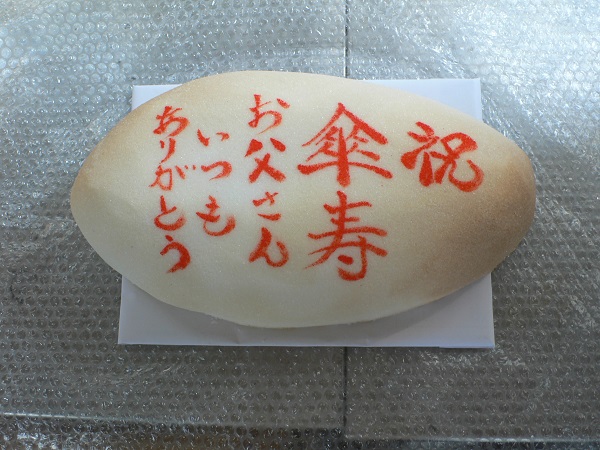 祝
傘寿
お父さん
いつも
ありがとう